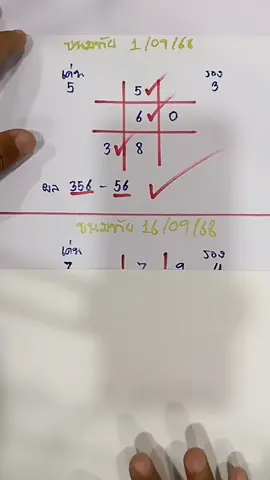 ชนมทัย 1/09/68
เด่น รอง
5 5 3
6 0
3 8
ผล 356 - 56
ชนมทัย 16/09/68
เด่น รอง
7 7 9 4